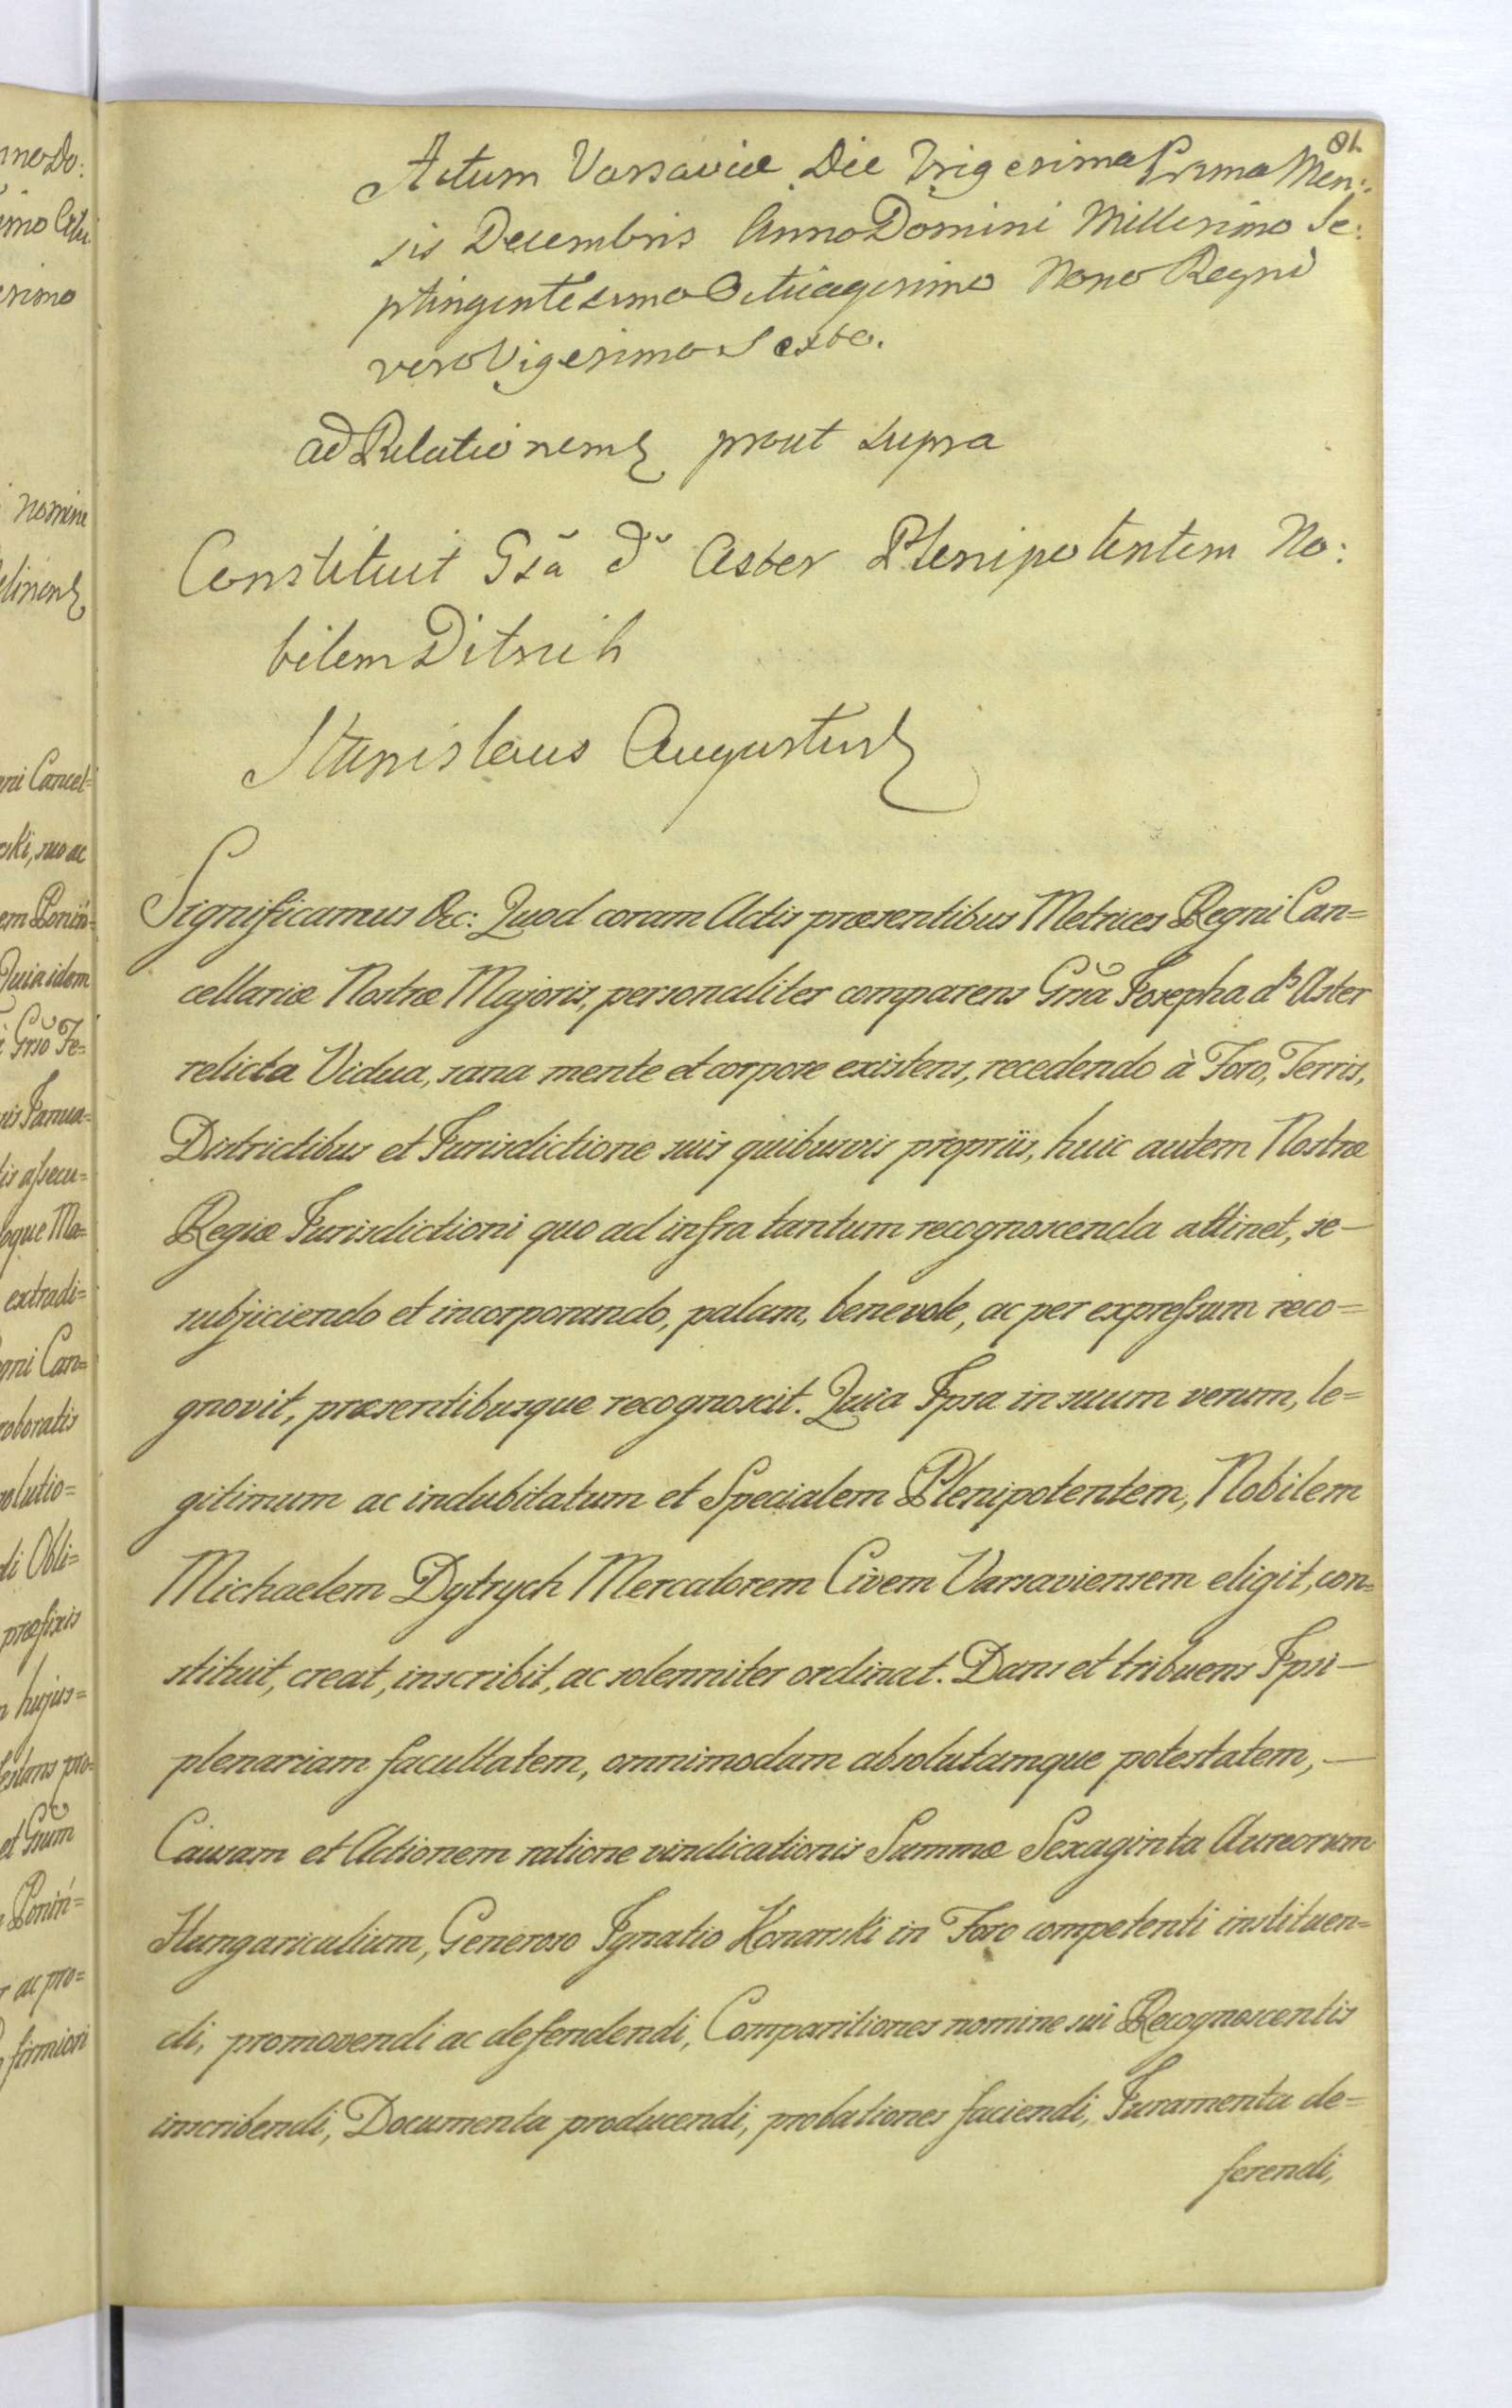 81
Actum Varsaviæ Die Trigesima Prima Men:
sis Decembris Anno Domini Millesimo Se:
ptingentesimo Octuagesimo Nono Regni
vero Vigesimo Sexto.
ad Relationem prout supra
Constituit Gsã d° Aster Plenipotentem No:
bilem Ditrich
Stanislaus Augustus
Significamus &c: Quod coram Actis præsentibus Metrices Regni Can=
cellariæ Nostræ Majoris, personaliter comparens Grsã Josepha d° Aster
relicta Vidua, sana mente et corpore existens, recedendo à Foro, Terris,
Districtibus et Jurisdictione suis quibusvis propriis, huic autem Nostræ
Regiæ Jurisdictioni quo ad infra tantum recognoscenda attinet, se—
subjiciendo et incorporando, palam, benevole, ac per expressum reco=
gnovit, præsentibusque recognoscit. Quia Ipsa in suum verum, le=
gitimum ac indubitatum et Specialem Plenipotentem, Nobilem
Michaelem Dytrych Mercatorem Civem Varsaviensem eligit, con=
stituit, creat, inscribit, ac solenniter ordinat. Dans et tribuens Ipsi—
plenariam facultatem, omnimodam absolutamque potestatem,—
Causam et Actionem ratione vindicationis Summæ Sexaginta Aureorum
Hungaricalium, Generoso Ignatio Konarski in Foro competenti instituen=
di, promovendi ac defendendi, Comparitiones nomine sui Recognoscentis
inscribendi, Documenta producendi, probationes faciendi, Juramenta de=
ferendi,